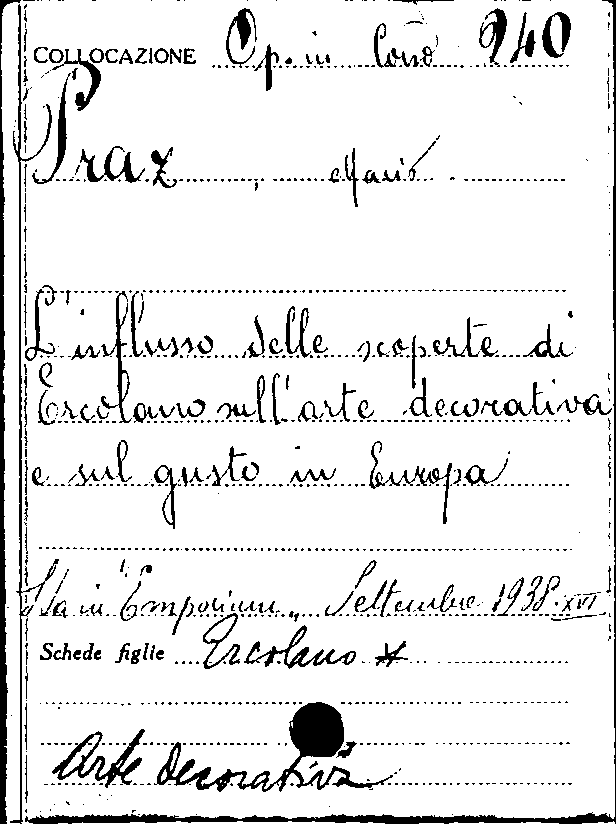 COLLOCAZIONE Op. in Cons 940
Praz, Mario.
L'influsso delle scoperte di
Ercolano sull'arte decorativa
e sul gusto in Europa
Sta in "Emporium" Settembre 1938.XVI
Schede figlie Ercolano *
Arte decorativa